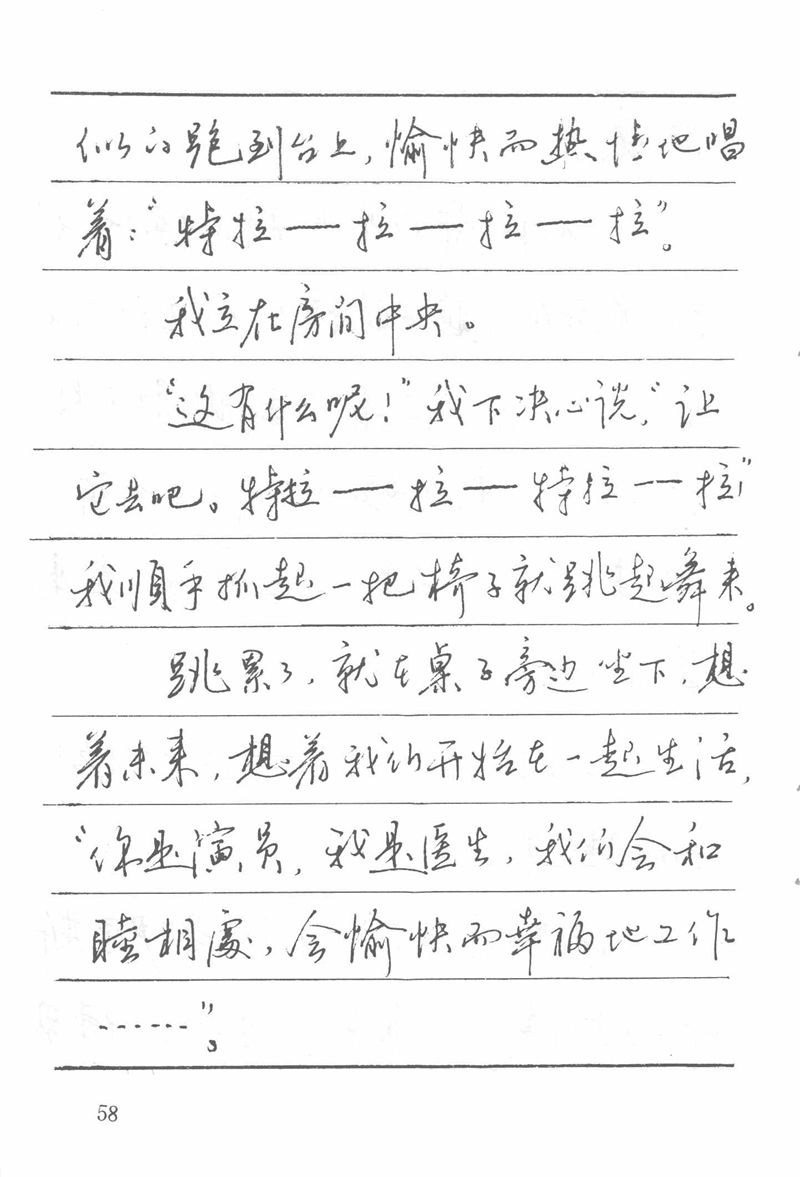 似的跑到台上，愉快而热情地唱
着：“特拉——拉——拉——拉”。
我立在房间中央。
“这有什么呢！”我下决心说，“让
它去吧。特拉——拉——特拉——拉！”
我順手抓起一把椅子就跳起舞来。
跳累了，就在桌子旁边坐下，想
着未来，想着我们开始在一起生活，
“你是演员，我是医生，我们会和
睦相處，会愉快而幸福地工作
……”。
58